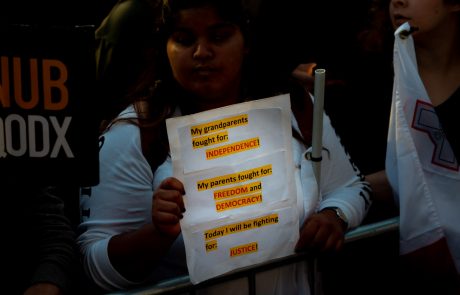 NUB
QODX
My grandparents
fought for:
INDEPENDENCE!
My parents fought for:
FREEDOM and
DEMOCRACY!
Today I will be fighting
for:
JUSTICE!